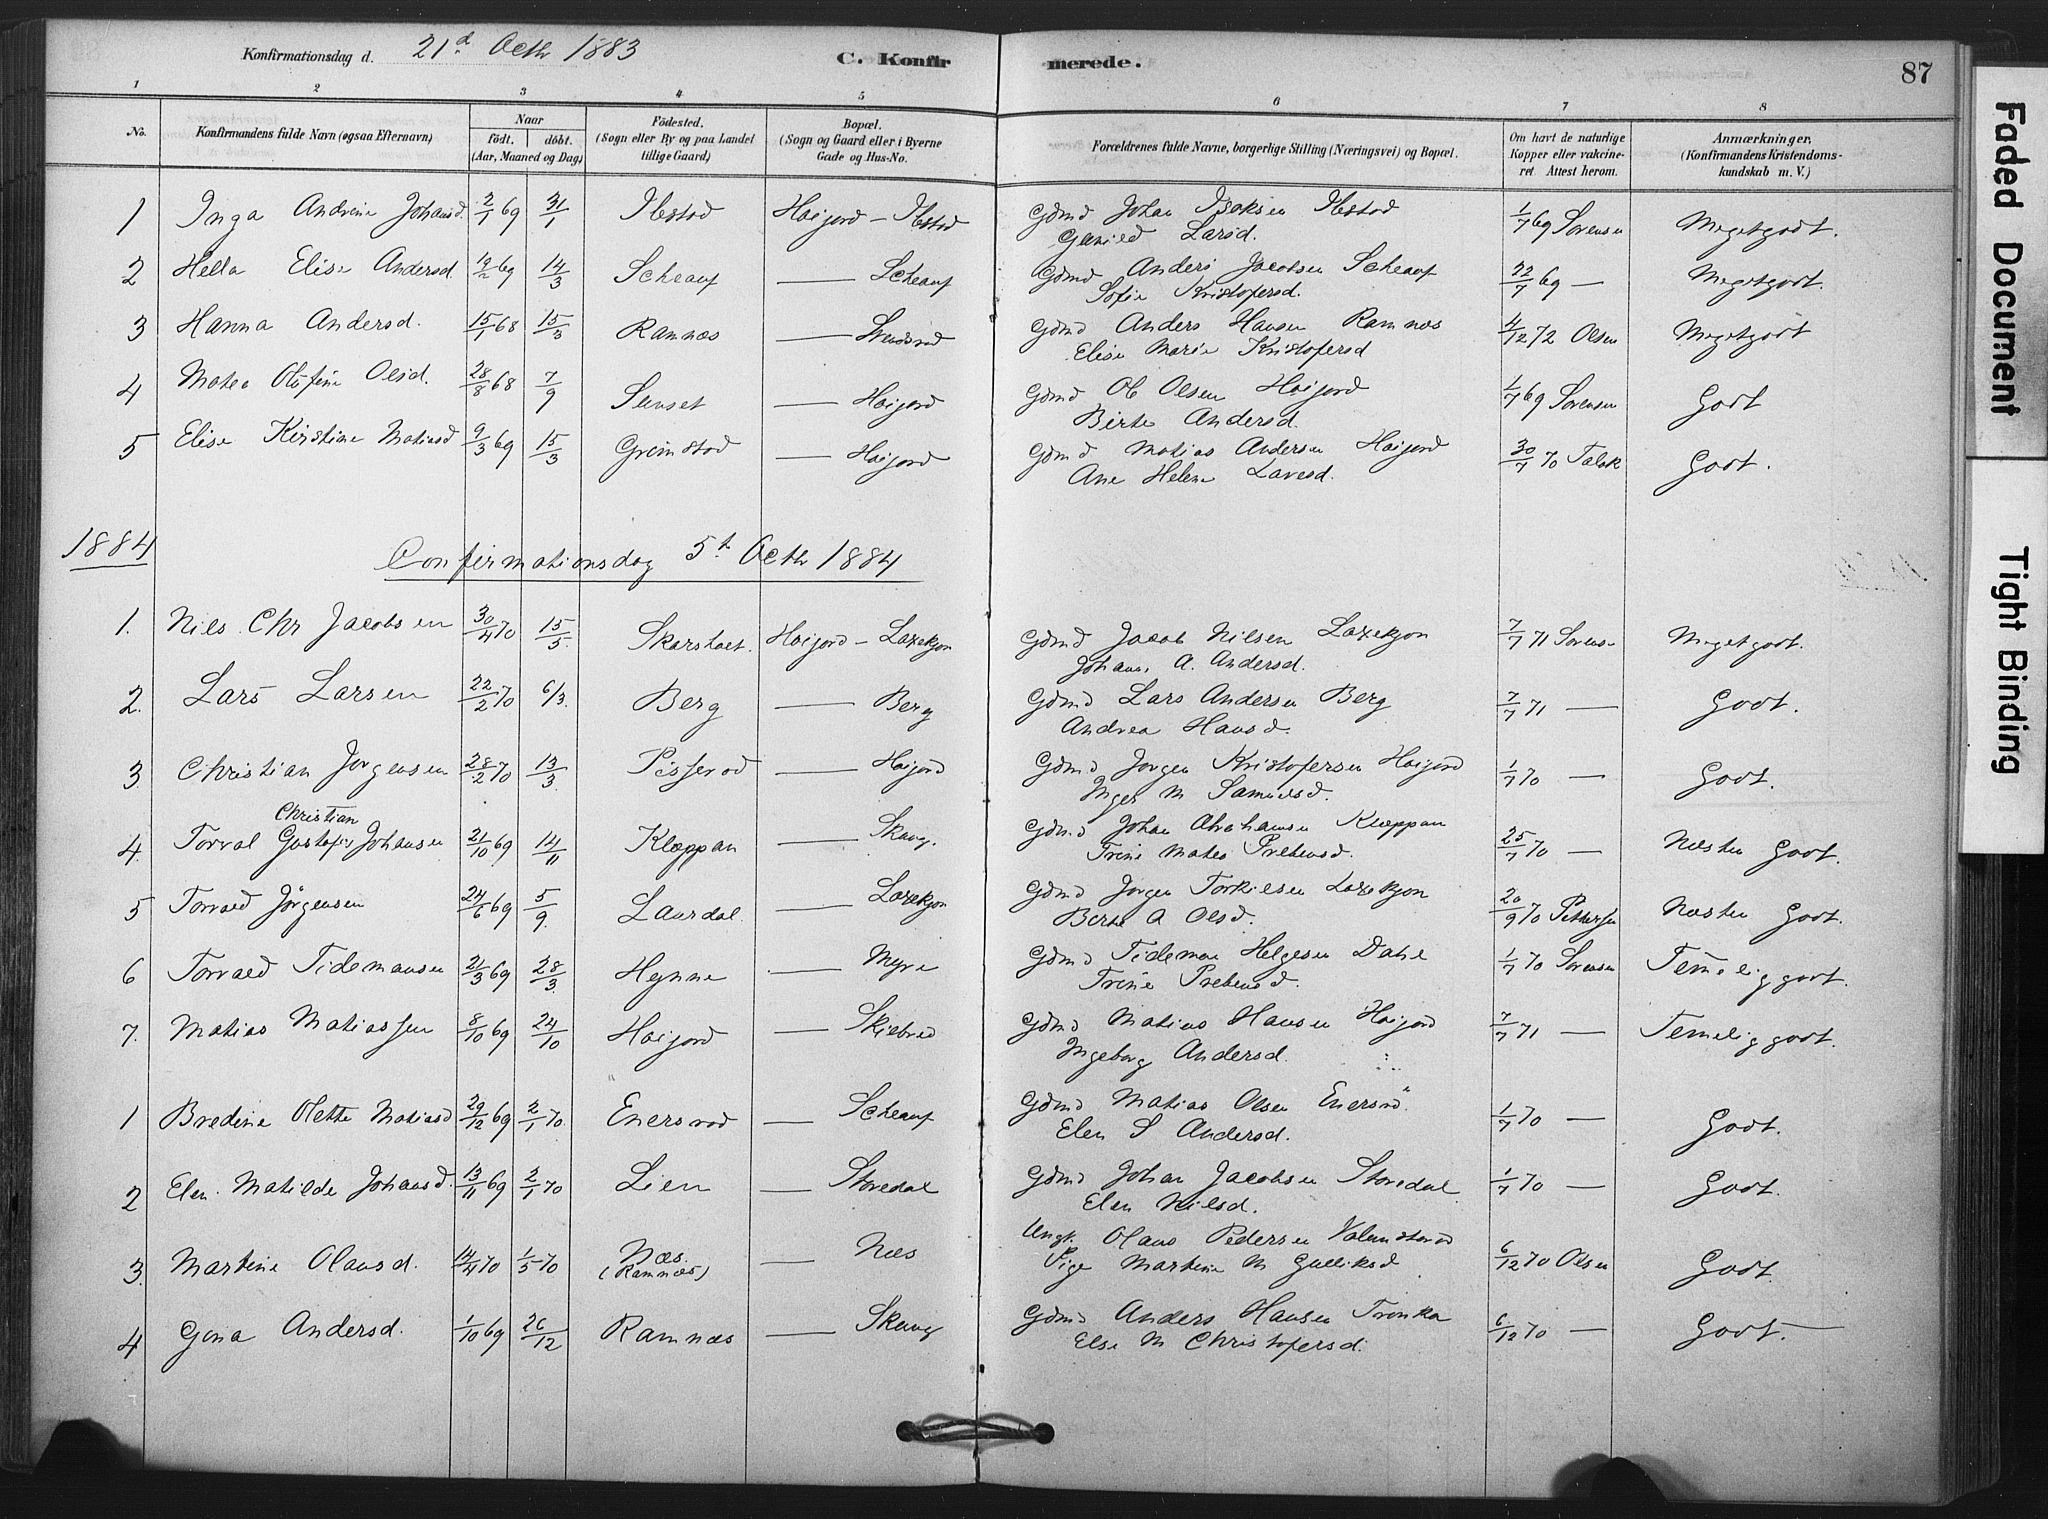 Konfirmationsdag d. 21d Octbr 1883
C. Konfirmerede.
87
1 2 3 4 5 6 7 8
No. Konfirmandens fulde Navn (ogsaa Efternavn) Naar födt. döbt. (Aar, Maaned og Dag) Födested. (Sogn eller By og paa Landet tillige Gaard) Bopæl. (Sogn og Gaard eller i Byerne Gade og Hus-No. Forældrenes fulde Navne, borgerlige Stilling (Næringsvei) og Bopæl. Om havt de naturlige Kopper eller vakcineret Attest herom. Anmærkninger, (Konfirmandens Kristendomskundskab m. V.)
1 Inga Andrine Johansd. 2/1 69 31/1 Ilestad Høijord - Ilestad Gdmd Johan Isaksen Ilestad 1/7 69 Sørensen Megetgodt.
Larsd.
2 Hella Elise Andersd. 19/2 69 14/3 Scheauf — Scheauf Gdmd Anders Jacobsen Scheauf 22/7 69 — Megetgodt.
Sofie Kristofersd.
3 Hanna Andersd. 15/1 68 15/3 Ramnæs — Gdmd Anders Hansen Ramnæs 4/12 72 Olsen Megetgodt
Elise Marie Kristofersd
4 Matea Olufine Olsd. 28/8 68 7/9 — Høijord Gdmd Ole Olsen Høijord 1/7 69 Sørensen Godt
Birte Andersd.
5 Elise Kirstine Matiasd 9/3 69 15/3 Grimstad — Høijord Gdmd Matias Andersen Høijord 30/7 70 Falck Godt.
Ane Helene Lavesd.
1884 Confirmationsdag 5t Octbr 1884
1. Nils Chr Jacobsen 30/4 70 15/5. Høijord - Laxekjøn Gdmd Jacob Nilsen Laxekjøn 7/7 71 Sørens- Megetgodt.
Johanne A. Andersd.
2. Lars Larsen 22/2 70 6/3. Berg — Berg Gdmd Lars Andersen Berg 7/7 71 — Godt.
Andrea Hansd.
3 Christian Jørgensen 28/2 70 13/3. Pisserød — Høijord Gdmd Jørgen Kristofersen Høijord 1/7 70 — Godt.
Inger M Samuelsd.
Christian
4 Torval Gustafs Johansen 21/10 69 14/11 Klæppan — Skaug. Gdmd Johan Abrahamsen Klæppan 25/7 70 — Næsten Godt.
Trine Matea Prebensd.
5 Torvald Jörgensen 24/6 69 5/9. Laurdal — Laxekjøn Gdmd Jørgen Torkilsen Laxekjøn 20/9 70 Pettersen Næsten Godt.
Berte A Olsd.
6 Torvald Tidemansen 21/3 69 28/3. Hynne — Myre Gdmd Tideman Helgesen Dahl 1/7 70 Sørensen Temelig godt.
Trine Prebensd.
7. Matias Matiassen 8/10 69 24/10 Høijord — Skiebred Gdmd Matias Hansen Høijord 7/7 71 — Temelig godt.
Ingeborg Andersd.
1 Bredine Olette Matiasd 29/12 69 2/1 70. Enersrød — Scheauf Gdmd Matias Olsen Enersrö. 1/7 70 — Godt.
Elen S Andersd.
2 Elen Matilde Johansd. 13/11 69 2/1 70 Lien — Storedal Gdmd Johan Jacobsen Storedal 1/7 70 — Godt.
Elen Nilsd.
3. Martine Olausd. 14/4 70 1/5 70 Næs. (Ramnæs) — Næs Ungk. Olaus Pedersen 6/12 70 Olsen Godt
Pige Martine M Gulliksd
4 Gina Andersd. 1/10 69 26/12 Ramnæs — Skaug Gdmd Anders Hansen Tronka 6/12 70 — Godt. —
Else M Christofersd.
Faded Document
Tight Binding